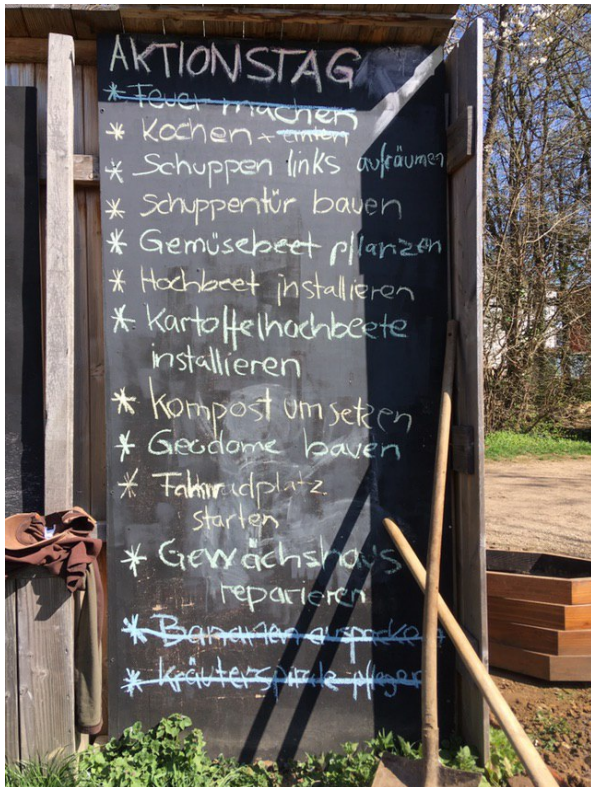 AKTIONSTAG
* Feuer machen
* Kochen + einten
* Schuppen links aufräumen
* Schuppentür bauen
* Gemüsebeet pflanzen
* Hochbeet installieren
* Kartoffelhochbeete
installieren
* Kompost umsetzen
* Geodome bauen
* Fahrradplatz
starten
* Gewächshaus
reparieren
* Bananen auspacken
* Kräuterspirale pflegen